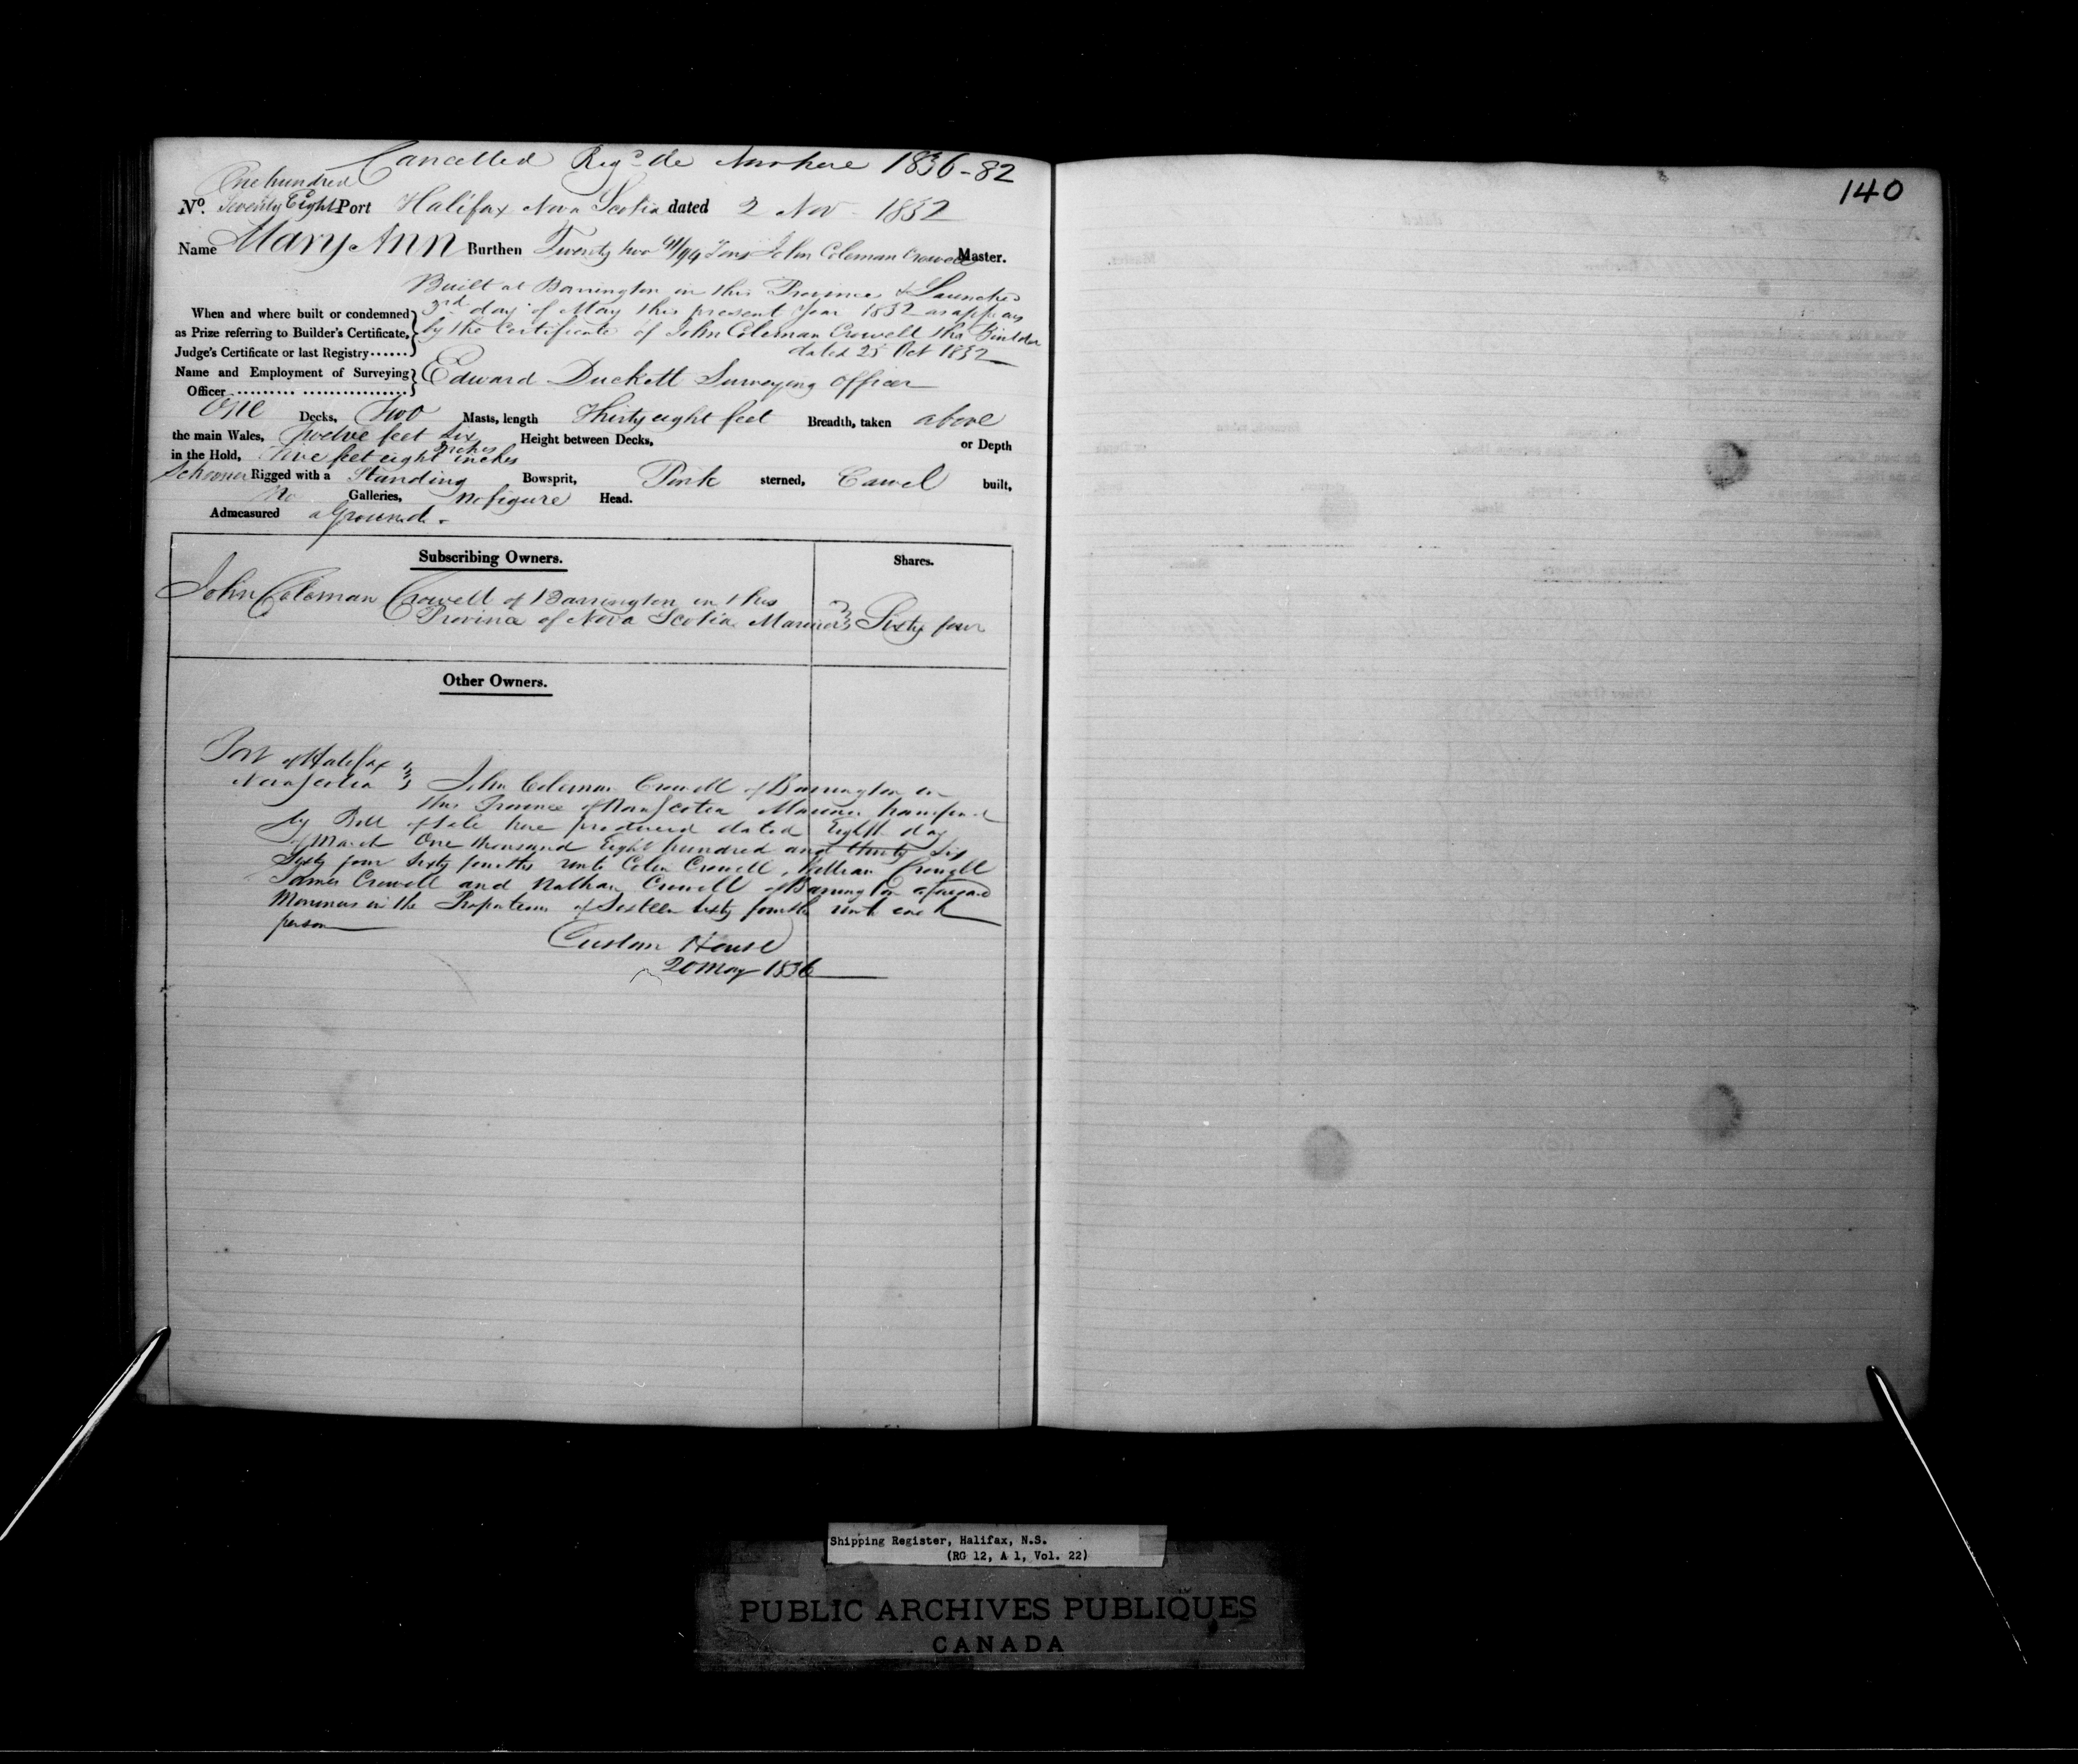 Cancelled Regd de Novo here 1836-82
140
One hundred
No. Seventy Eight Port Halifax Nova Scotia dated 2 Nov 1832
Name Mary Ann Burthen Twenty two 41/94 Tons John Coleman Crowell Master.
Built at Barrington in this Province & Launched
When and where built or condemned 3rd day of May this present Year 1832 as appears
as Prize referring to Builder's Certificate, by the Certificate of John Coleman Crowell the Builder
Judge's Certificate or last Registry ...... dated 25 Oct 1832
Name and Employment of Surveying Edward Duckett Surveying Officer
Officer
One Decks, Two Masts, length Thirty eight feet Breadth, taken above
the main Wales, Twelve feet Six inches Height between Decks, or Depth
in the Hold, Five feet eight inches
Schooner Rigged with a Standing Bowsprit, Pink sterned, Carvel built,
No Galleries, No figure Head.
Admeasured a Ground.
Subscribing Owners. Shares.
John Coleman Crowell of Barrington in this
Province of Nova Scotia Mariner Sixty four
Other Owners.
Port of Halifax
Nova Scotia John Coleman Crowell of Barrington in
this Province of Nova Scotia Mariner transferred
by Bill of Sale here produced dated Eighth day
of March One thousand Eight hundred and thirty Six
Sixty four Sixty fourths unto Colin Crowell, William Crowell
James Crowell and Nathan Crowell of Barrington aforesaid
Mariners in the Proportions of Sixteen Sixty fourths unto each
person
Custom House
20 May 1836
Shipping Register, Halifax, N.S.
(RG 12, A 1, Vol. 22)
PUBLIC ARCHIVES PUBLIQUES
CANADA